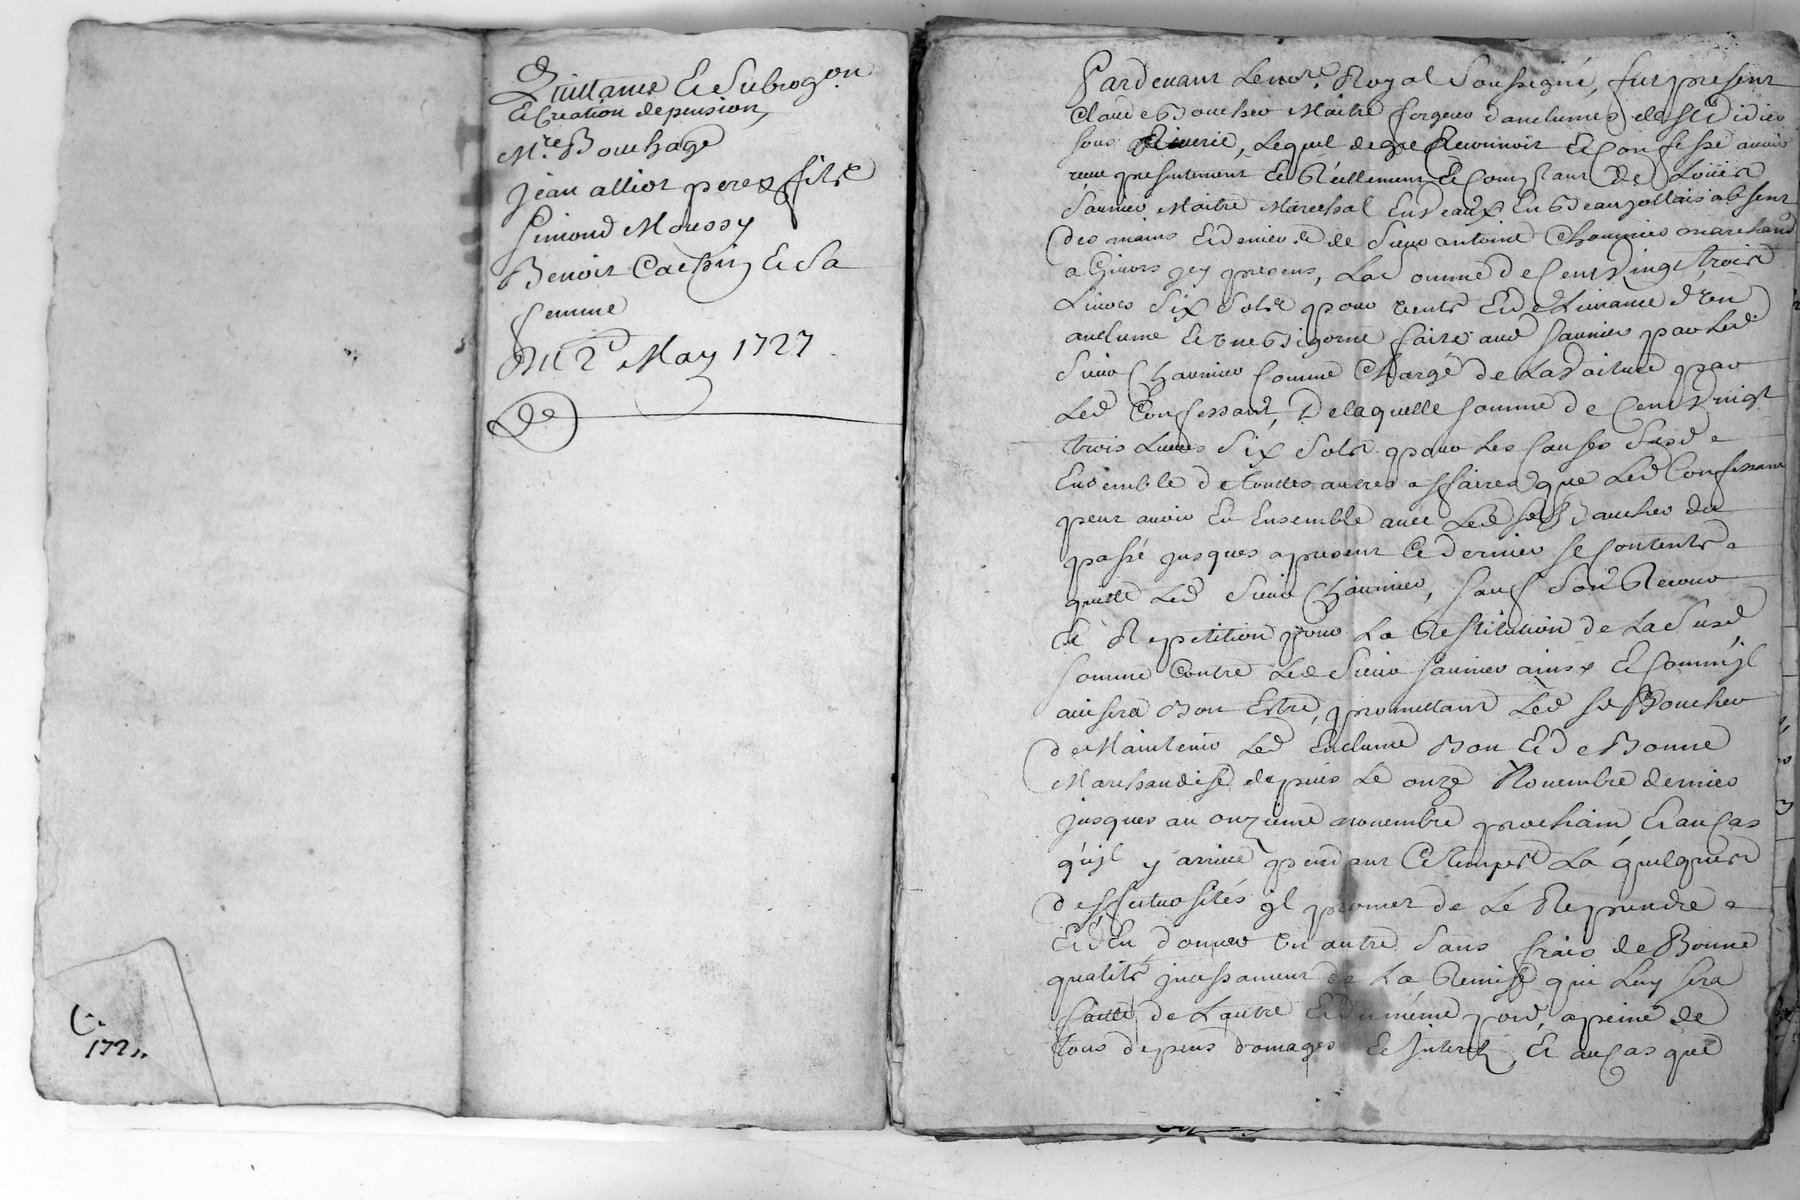 Quittance Et Subrog.on
Et Creation de pension,
Mre Bouchage
Jean alliot pere & fils
Simond Moussy
Benoit Cachin Et Sa
femme
Du 2e May 1727
De
1727.
Pardevant Le notre Royal Soussigné, fut present
Claude Boucher Maitre forgeur d'anclumes de St Didier
sous Riverie, Lequel de gré Reconnoit Et Confesse avoir
receu presentement Et Réellement Et Comptant De Loüis
Saunier Maitre Marechal En Beaujollais absent
Des mains Et deniers de Sieur antoine Chaunier marchand
a Givors jcy present, La Somme de Cent Vingt trois
Livres Six Sols pour vente Et delivrance d'Un
anclume Et une Bigorne faite aud Saunier par Led
Sieur Chaunier Comme Chargé de La Voiture par
Led Confessant, De laquelle somme de Cent Vingt
trois Livres Six Sols pour Les Causes Susd
Ensemble de touttes autres affaires que Led Confessant
peut avoir Eu Ensemble avec Led Sr Boucher du
passé jusques apresent Ce dernier se Contente
quitte Led Sieur Chaunier, sauf Son Recour
Et Repetition pour La Restitution de La Susd
somme Contre Led Sieur Saunier ainsy Et Comm'jl
avisera Bon Estre, promettant Led Sr Boucher
de Maintenir Led Enclume Bon Et de Bonne
Marchandise depuis Le onze Novembre dernier
jusques au onzieme novembre prochain, Et au Cas
qu'jl y arrive pendant Ce temps La quelques
deffectuosités jl promet de Le Reprendre
Et d'En donner Un autre Sans frais de Bonne
qualité jncessament de La Remise qui Luy sera
faitte de L'autre Et du même poid, a peine de
tous depens domages Et Interets, Et au Cas que